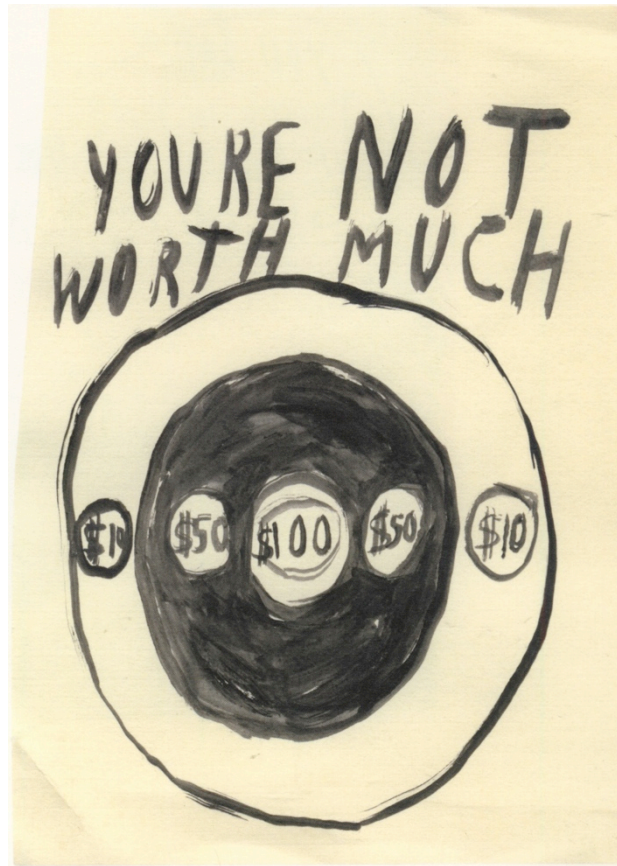 YOURE NOT
WORTH MUCH
$10 $50 $100 $50 $10